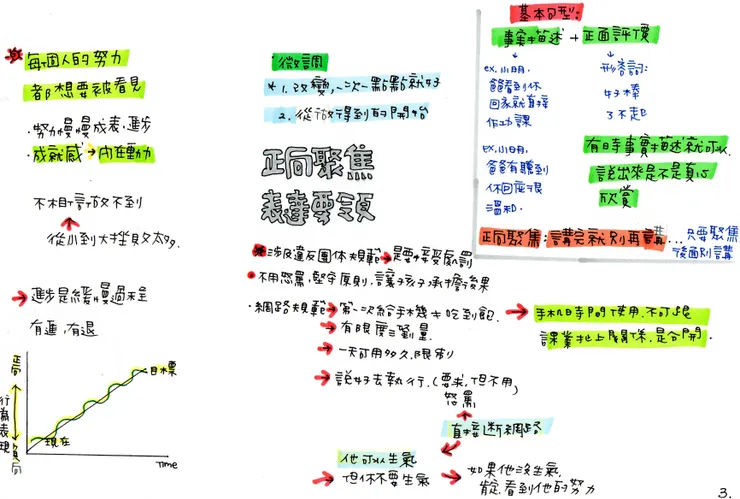 每個人的努力
都想要被看見
·努力慢慢成表,進步
·成就感→內在動力
不相訂放不到
從小到大挫敗太多.
進步是緩慢過程
有進,有退
正向
行為表現
負向
目標
現在
Time
微調
*1.改變,一次一點點就好
2.從做得到的開始
正向聚焦
表達要領
基本句型:
事實描述+正面評價
ex.小明,
爸看到你
回家就直接
作功課
形容詞:
好棒
了不起
ex,小明,
爸爸有聽到
你回應很
溫和.
有時事實描述就可以.
說出來是不是真心
欣賞
正向聚焦:講完就別再講...
只要聚焦
後面別講
涉及違反團体規範→是要接受處罰
·不用怒罵,堅守原則,讓孩子承擔後果
·網路規範→第一次給手機≠吃到飽.
→有限度三到量.
→一天可用多久.限制
→說好去執行.(要求,但不用)
怒罵
→手机時間使用,不可跟
課業扯上關係,是分開.
直接斷網路
他可以生氣
→但你不要生氣
→如果他沒生氣,
肯定看到他的努力
3.